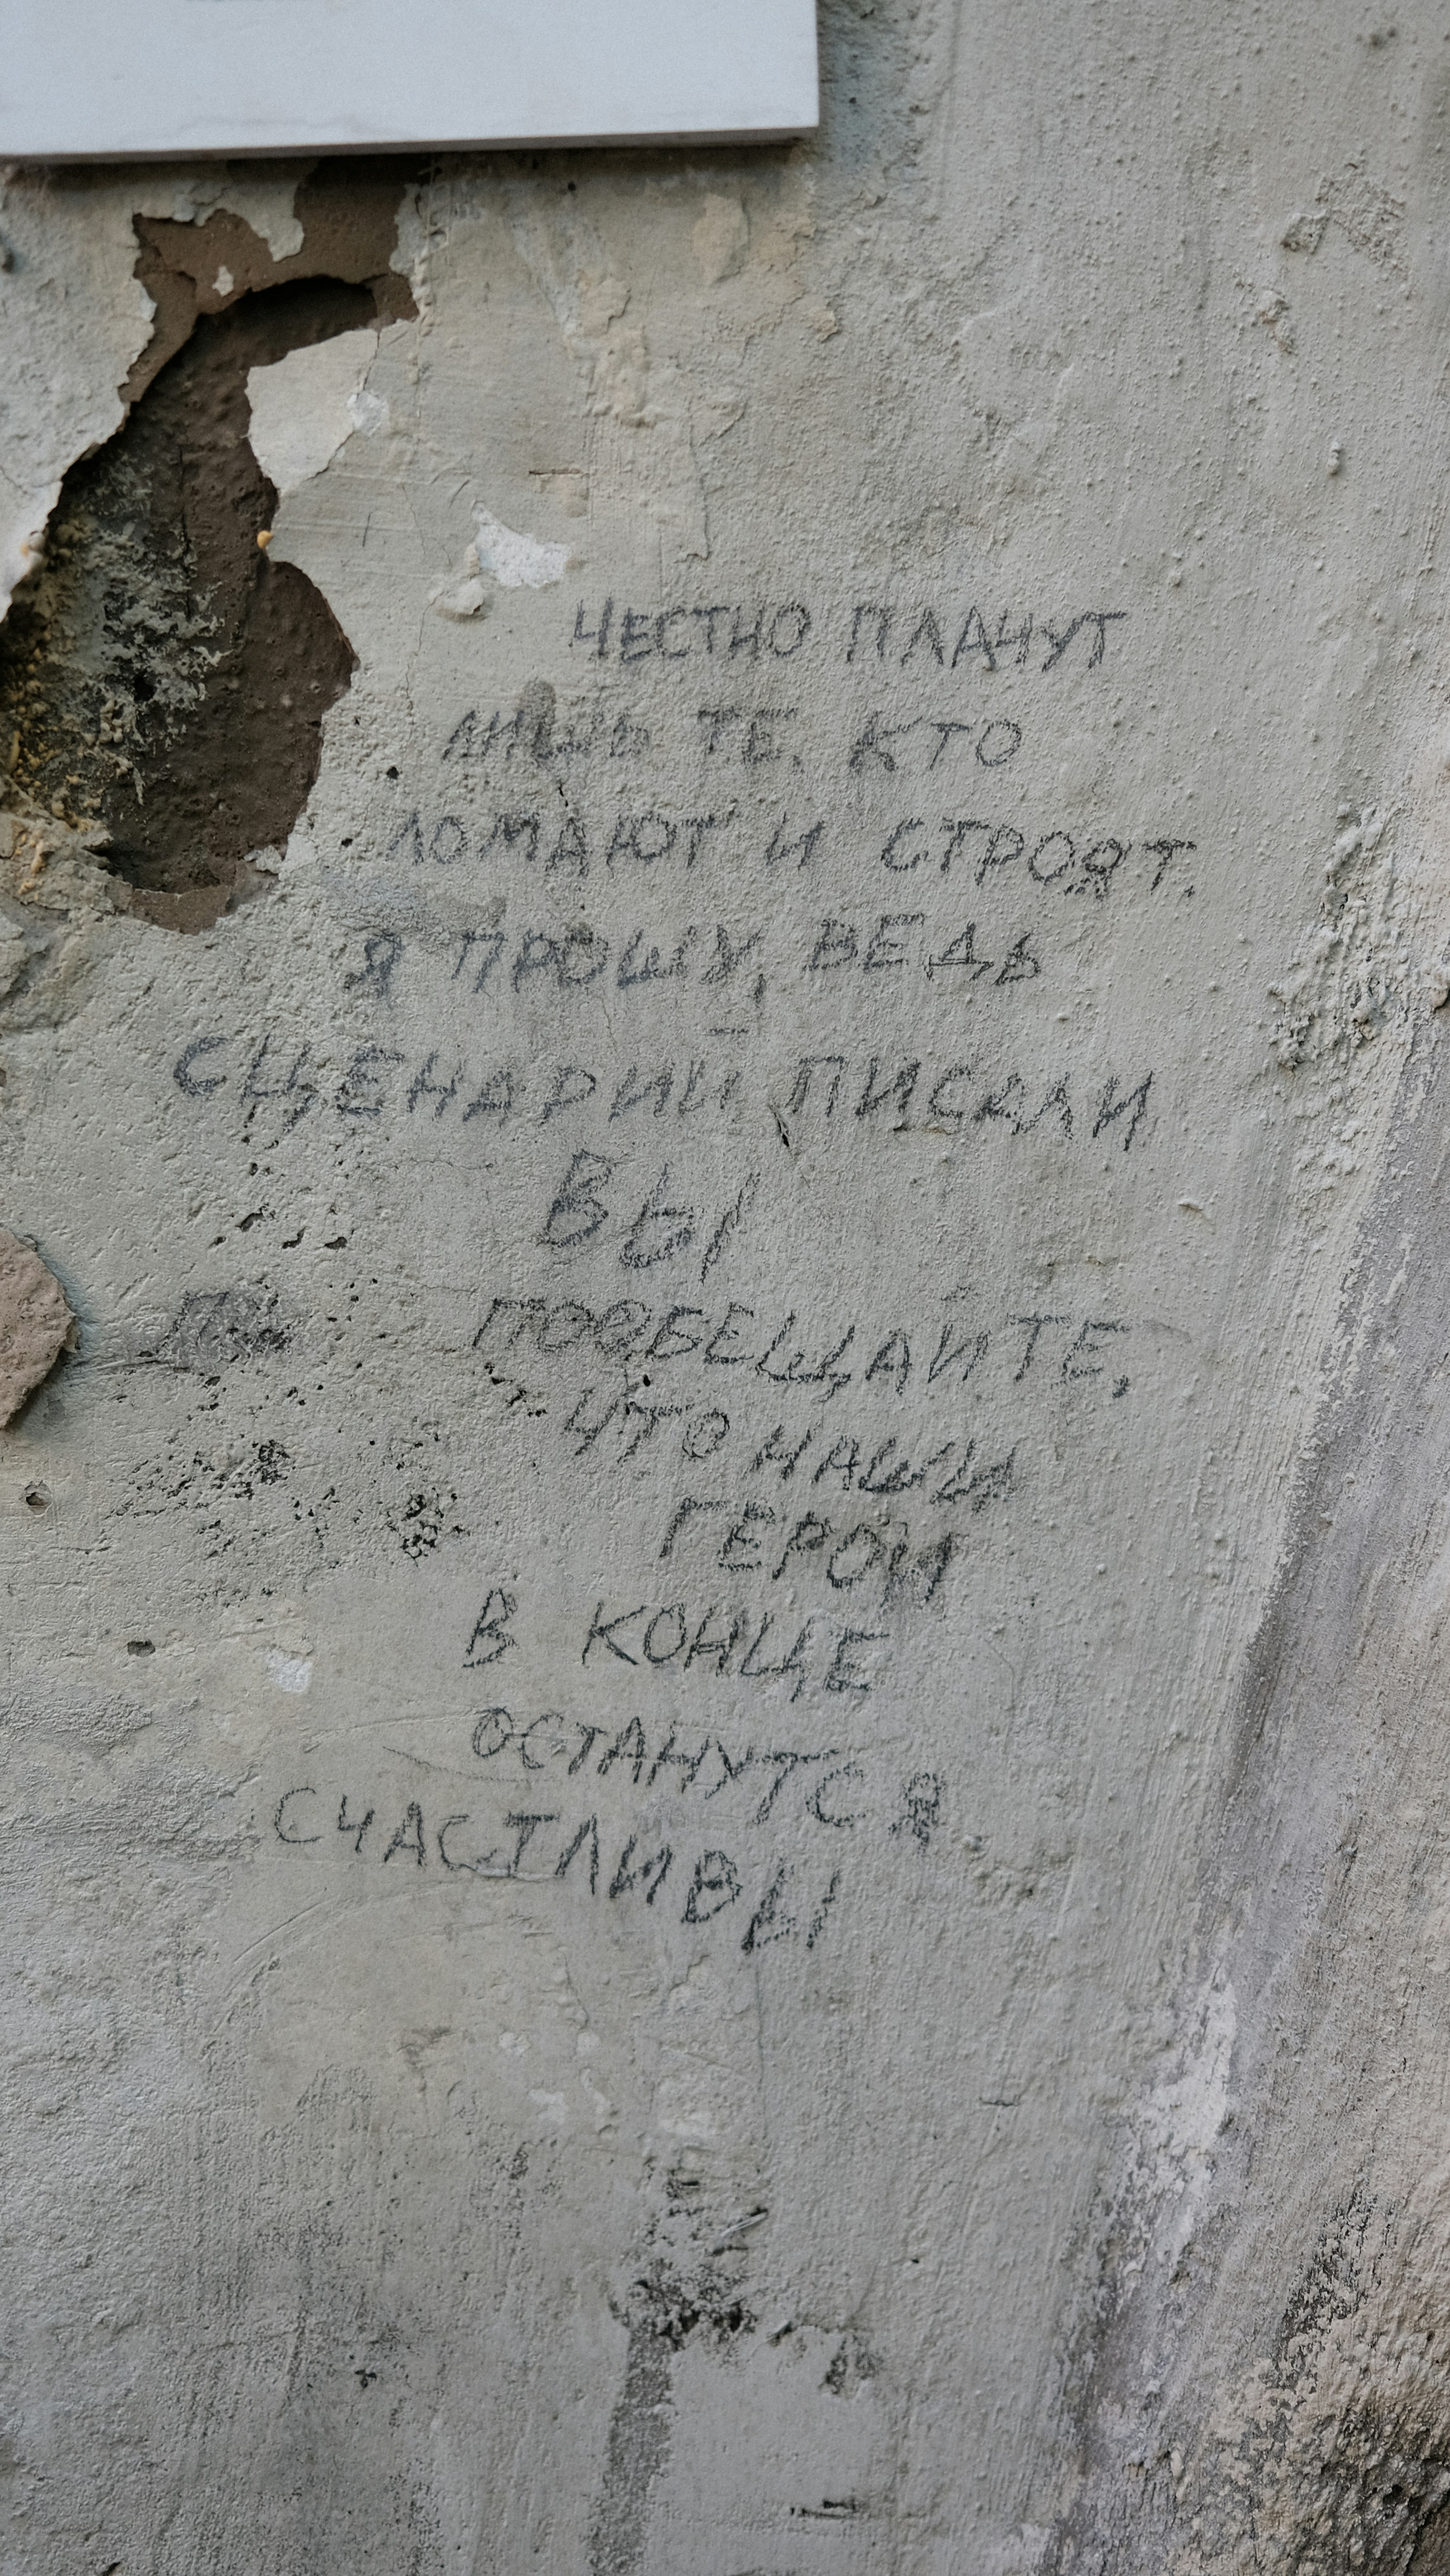 ЧЕСТНО ПЛАЧУТ
ЛИШЬ ТЕ, КТО
ЛОМАЮТ И СТРОЯТ.
Я ПРОШУ, ВЕДЬ
СЦЕНАРИЙ ПИСАЛИ
ВЫ
ПООБЕЩАЙТЕ,
ЧТО НАШИ
ГЕРОИ
В КОНЦЕ
ОСТАНУТСЯ
СЧАСТЛИВЫ